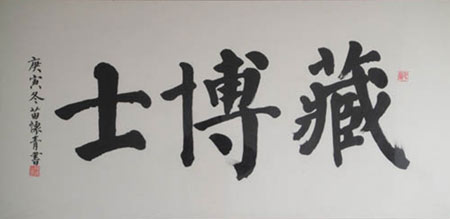 藏博士
庚寅冬苗怀青書